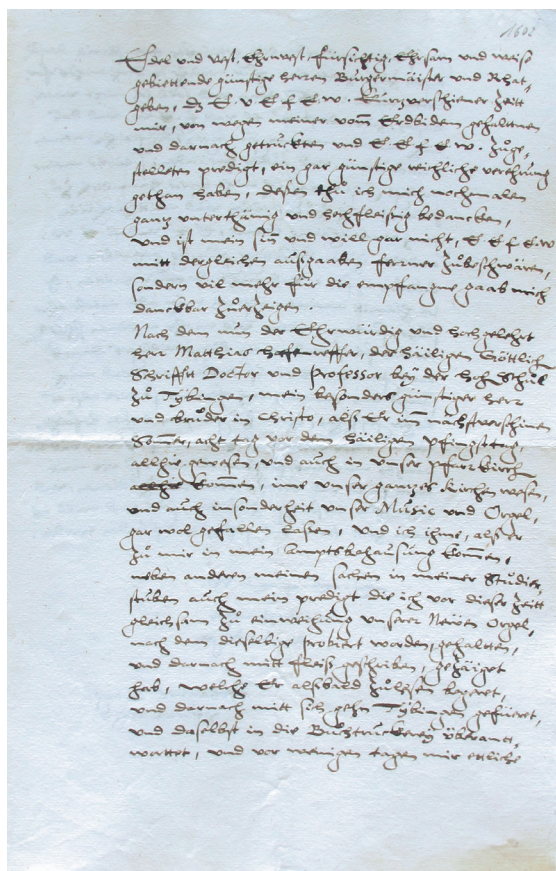 1602
Edel und vest, Ehrnvest, fürsichtig, Ehrsam und weiß
gebiettende günstige herren Burgermaister und Rhat,
geben, dz E. v E f E. w. kurtzverschiener Zeitt
mir, von wegen meiner vom Erdbidem gehalttnen
und darnach getruckten und E. E f E. w. zuge,
stelleten predigt, ein gar günstige reichliche verehrung
gethan haben, deßen thu ich mich nochmalen
gantz unterthänig und hochfleisig bedancken,
und ist mein sin und will gar nicht, E E f E.w
mitt dergleichen außgaaben ferrner zubeschwären,
sondern vil mehr für die empfangne gaab mich
danckbar zuerzeigen.
Nach dem nun der Ehrwürdig und hochgelehrt
herr Matthias Hafenreffer, der häiligen Göttlichen
Schrifft Doctor und professor bey der hohen Schul
zu Tybingen, mein besonders günstiger herr
und bruder in Christo, alß Er im nächstverschinen
Sommer, acht tag vor dem häiligen pfingsttag,
allhie gewesen, und auch in unser pfarrkirch
kommen, ime unser gantzes kirchen wesen,
und auch insonderheit unser Music und Orgel,
gar wol gefallen laßen, und ich ihme, alß er
zu mir in mein Amptsbehausung kommen,
neben anderen meinen sachen in meiner Studier,
stuben auch mein predigt die ich vor dieser zeitt
gleichsam zu einweihung unserer Newen Orgel,
nach dem dieselbige probiert worden, gehaltten,
und darnach mitt fleiß geschriben, gezäiget
hab, welche Er alsbald zulesen begeret,
und darnach mitt sich gehn Tybingen gefüeret,
und daselbst in die Buchtruckerey überantt,
worttet, und vor wenigen tagen mir ettliche